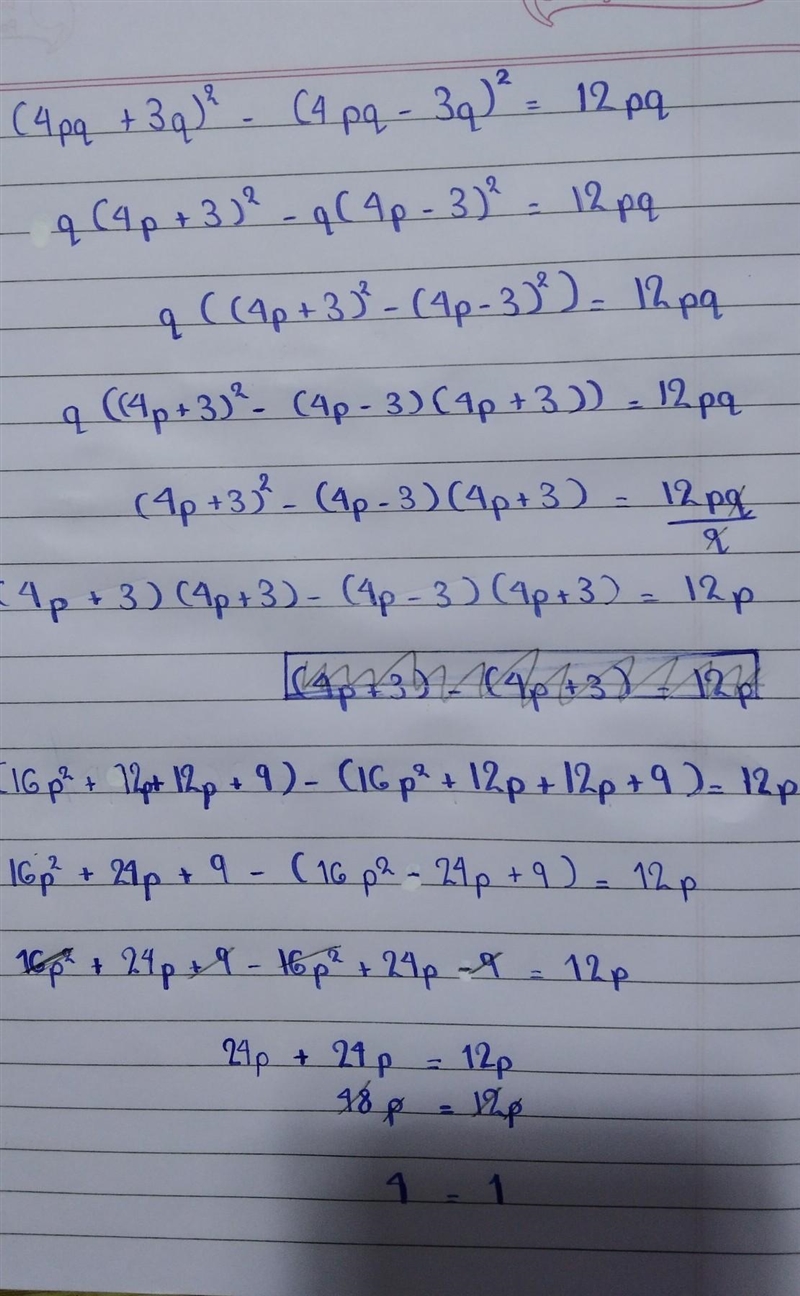 (4pq + 3q)² - (4pq - 3q)² = 12pq
q(4p + 3)² - q(4p - 3)² = 12pq
q((4p + 3)² - (4p - 3)²) = 12pq
q((4p + 3)² - (4p - 3)(4p + 3)) = 12pq
(4p + 3)² - (4p - 3)(4p + 3) = 12pq/q
(4p + 3)(4p + 3) - (4p - 3)(4p + 3) = 12p
(4p + 3) - (4p + 3) = 12p
(16p² + 12p + 12p + 9) - (16p² + 12p + 12p + 9) = 12p
16p² + 24p + 9 - (16p² - 24p + 9) = 12p
16p² + 24p + 9 - 16p² + 24p - 9 = 12p
24p + 24p = 12p
48p = 12p
4 = 1